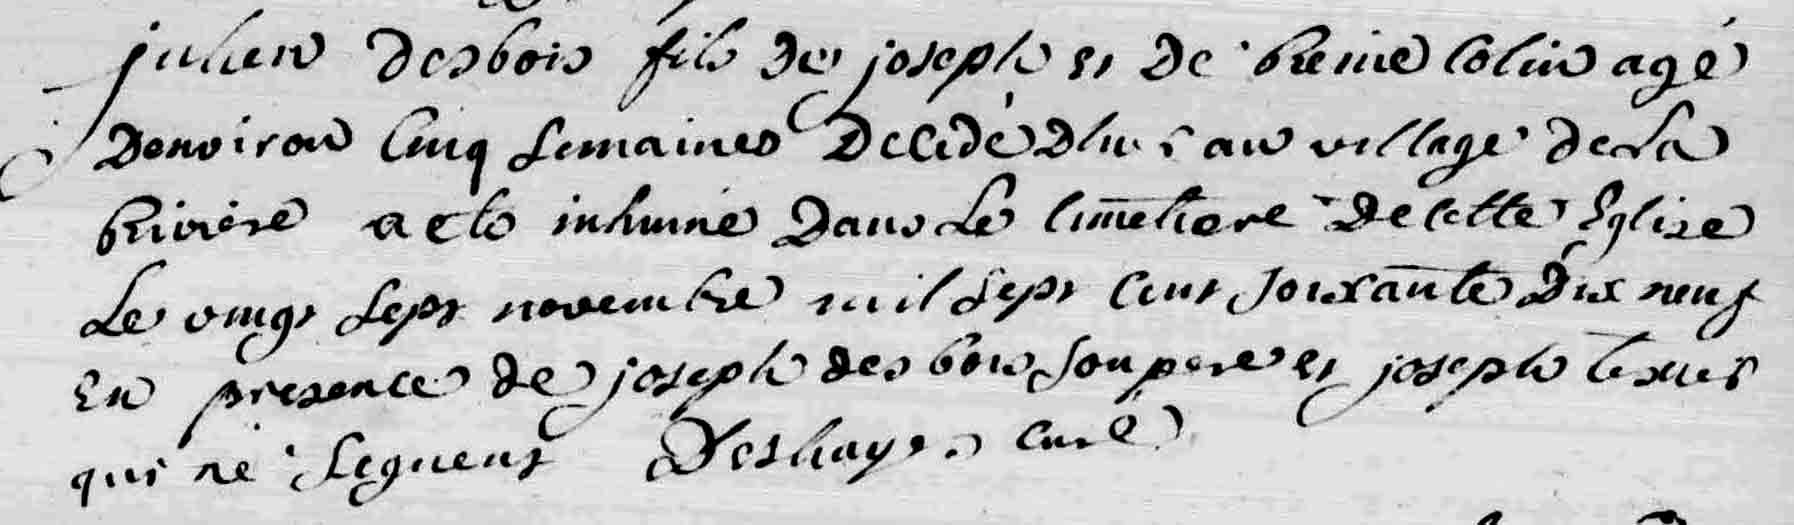 julien desbois fils de joseph et de Reine Colin agé
d'environ cinq semaines decedé d'hier au village de la
Riviere a eté inhumé dans le cimetiere de cette Eglise
le vingt sept novembre mil sept cent soixante dix neuf
en presence de joseph des bois son pere et joseph
qui ne signent Deshayes curé